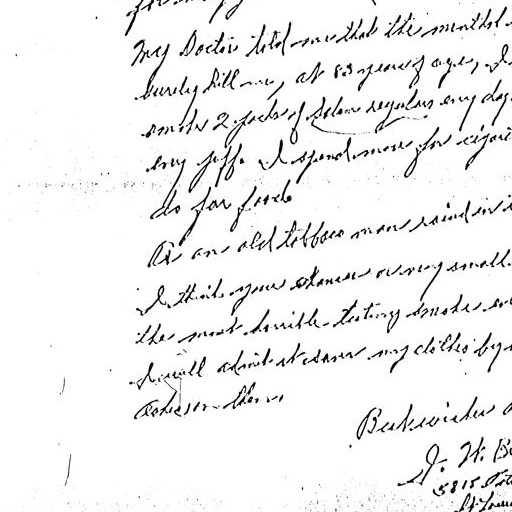 My Doctor told me that the menthol
surely kill me, at 83 years of age, I
smoke 2 packs of Salem regular every day
every puff. I spend more for cigare
do for food.
As an old tobbaco man raised in
I think your chances are very small.
the most horrible tasting smoke
I will admit it saves my clothes by
ashes on them.
Best wishes
J. W. B
5815
St. Loui